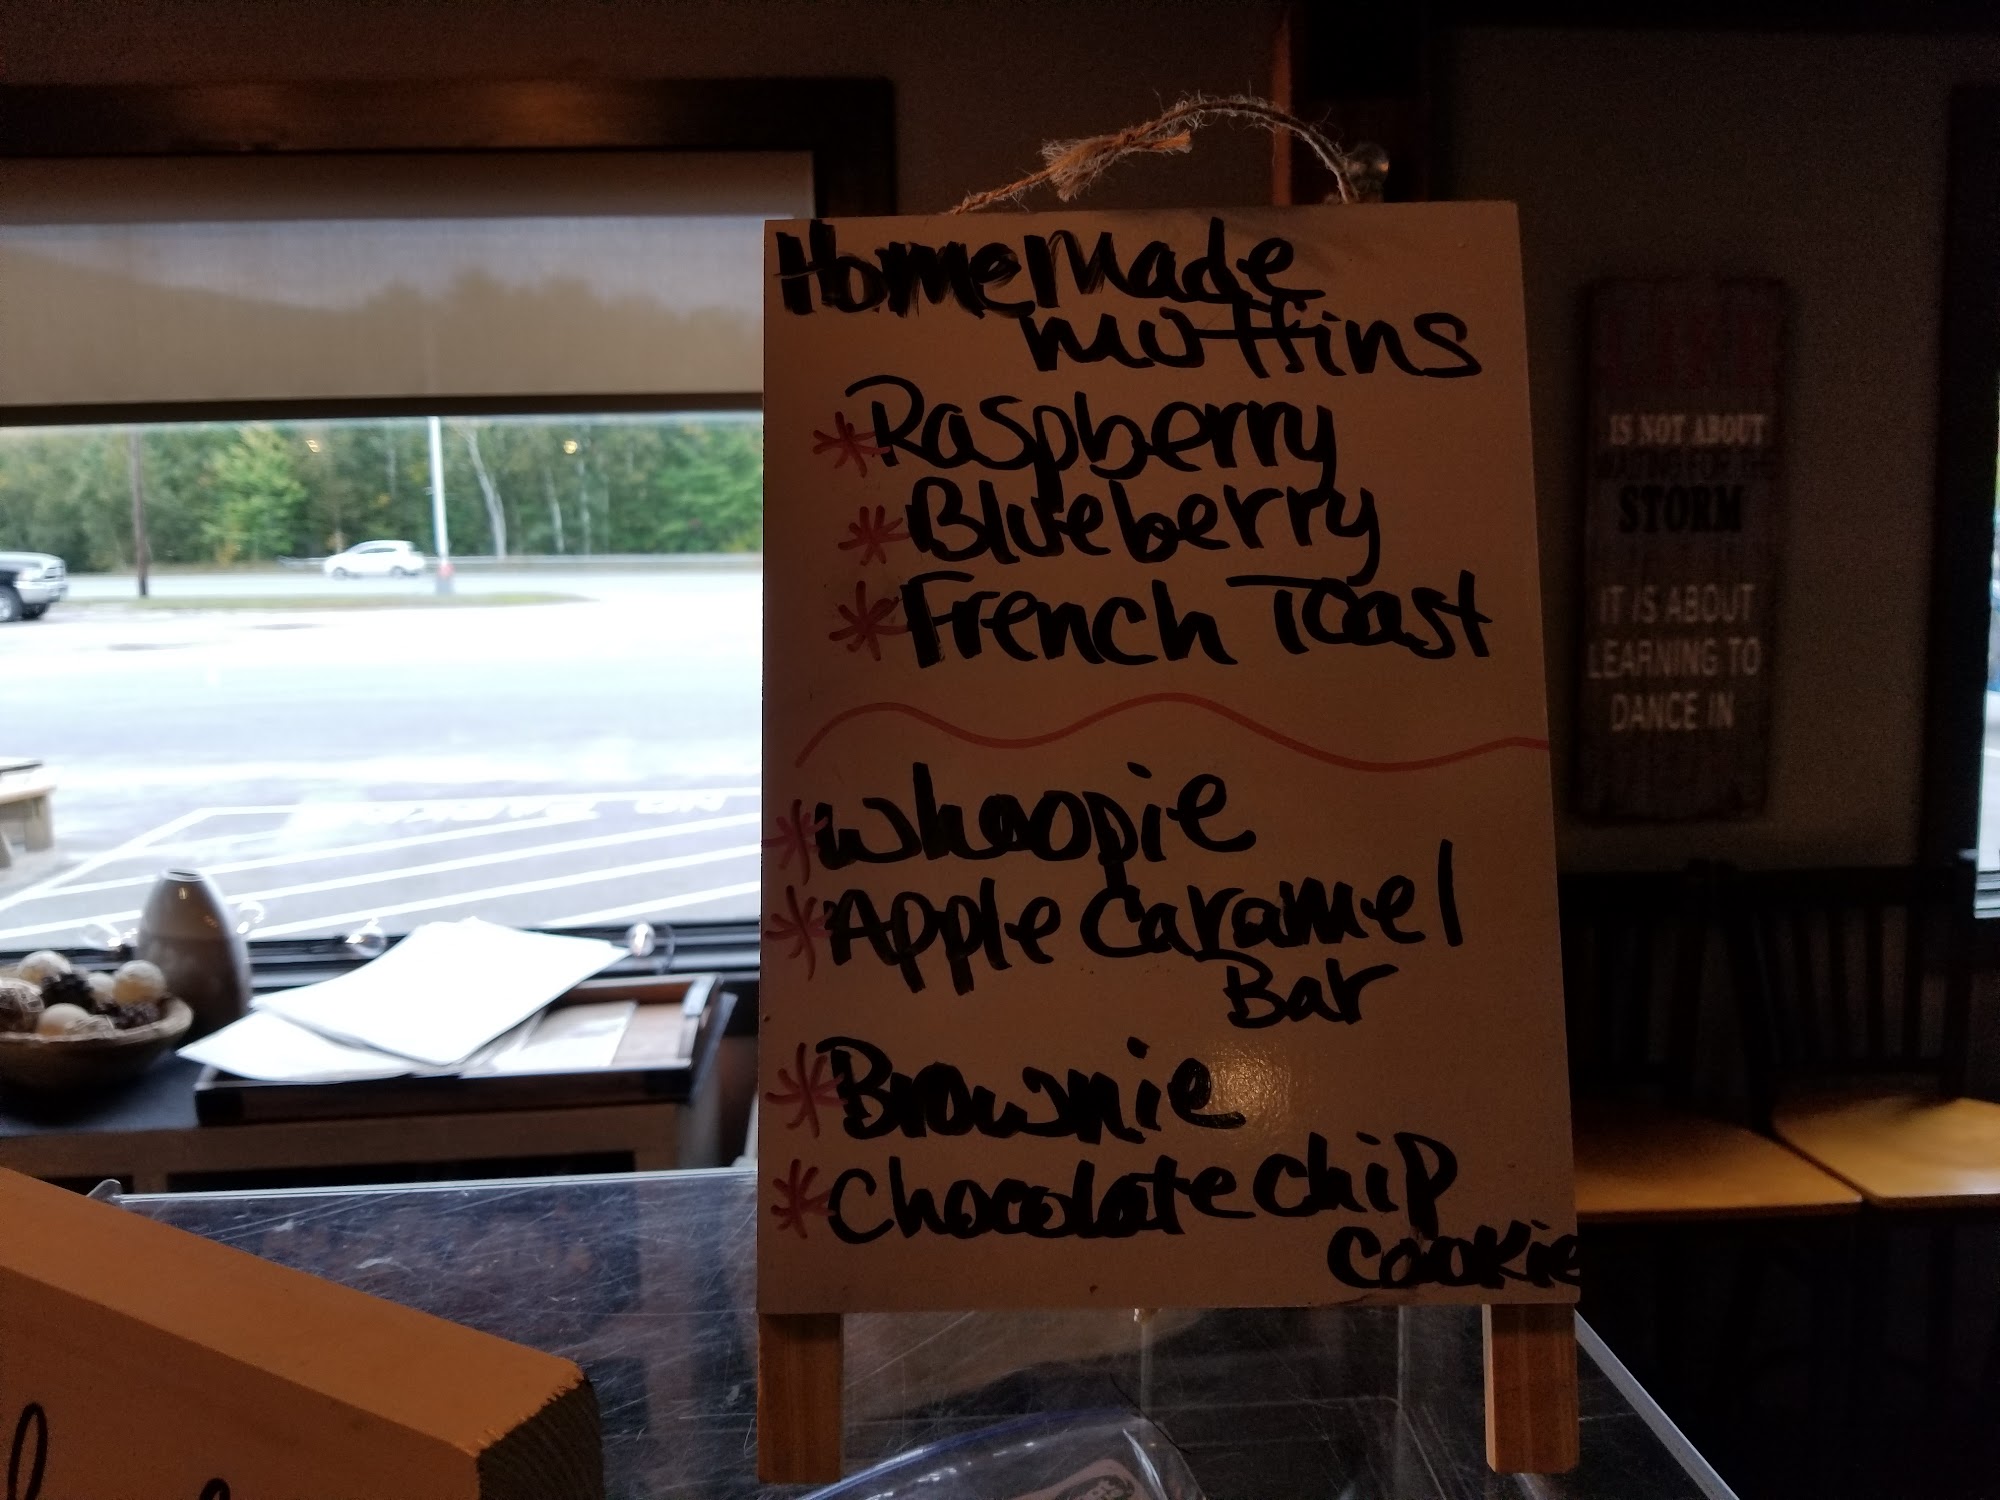 HomeMade
muffins
*Raspberry
*Blueberry
*French Toast
*Whoopie
*Apple Caramel
Bar
*Brownie
*Chocolate Chip
Cookie
IS NOT ABOUT
WAITING FOR THE
STORM
IT IS ABOUT
LEARNING TO
DANCE IN
NO